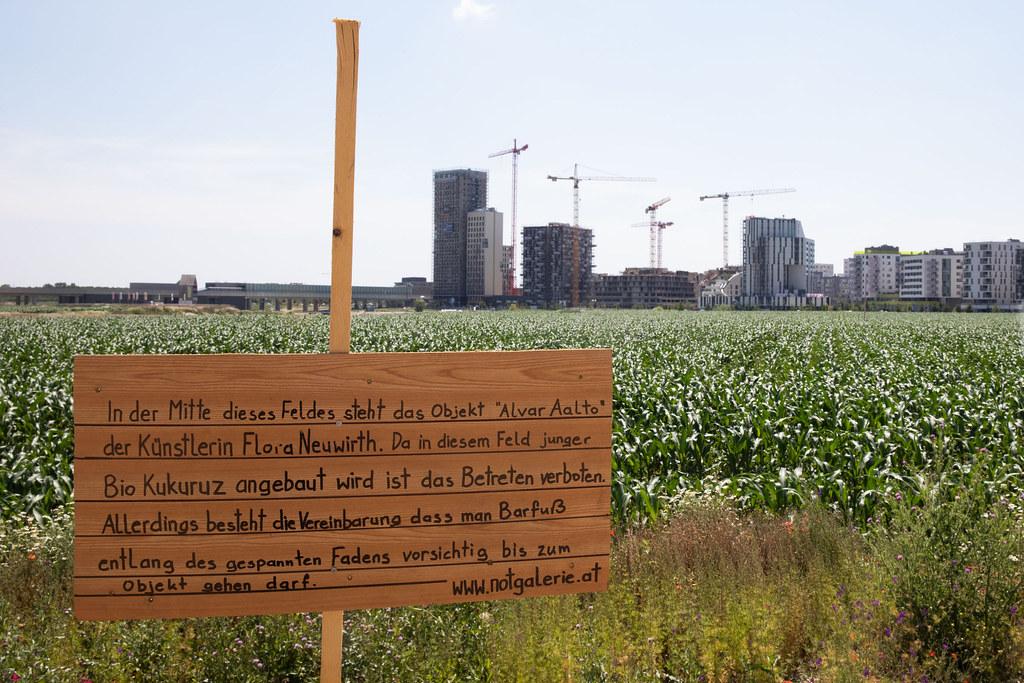 In der Mitte dieses Feldes steht das Objekt "Alvar Aalto"
der Künstlerin Flora Neuwirth. Da in diesem Feld junger
Bio Kukuruz angebaut wird ist das Betreten verboten.
Allerdings besteht die Vereinbarung dass man Barfuß
entlang des gespannten Fadens vorsichtig bis zum
Objekt gehen darf.
www.notgalerie.at